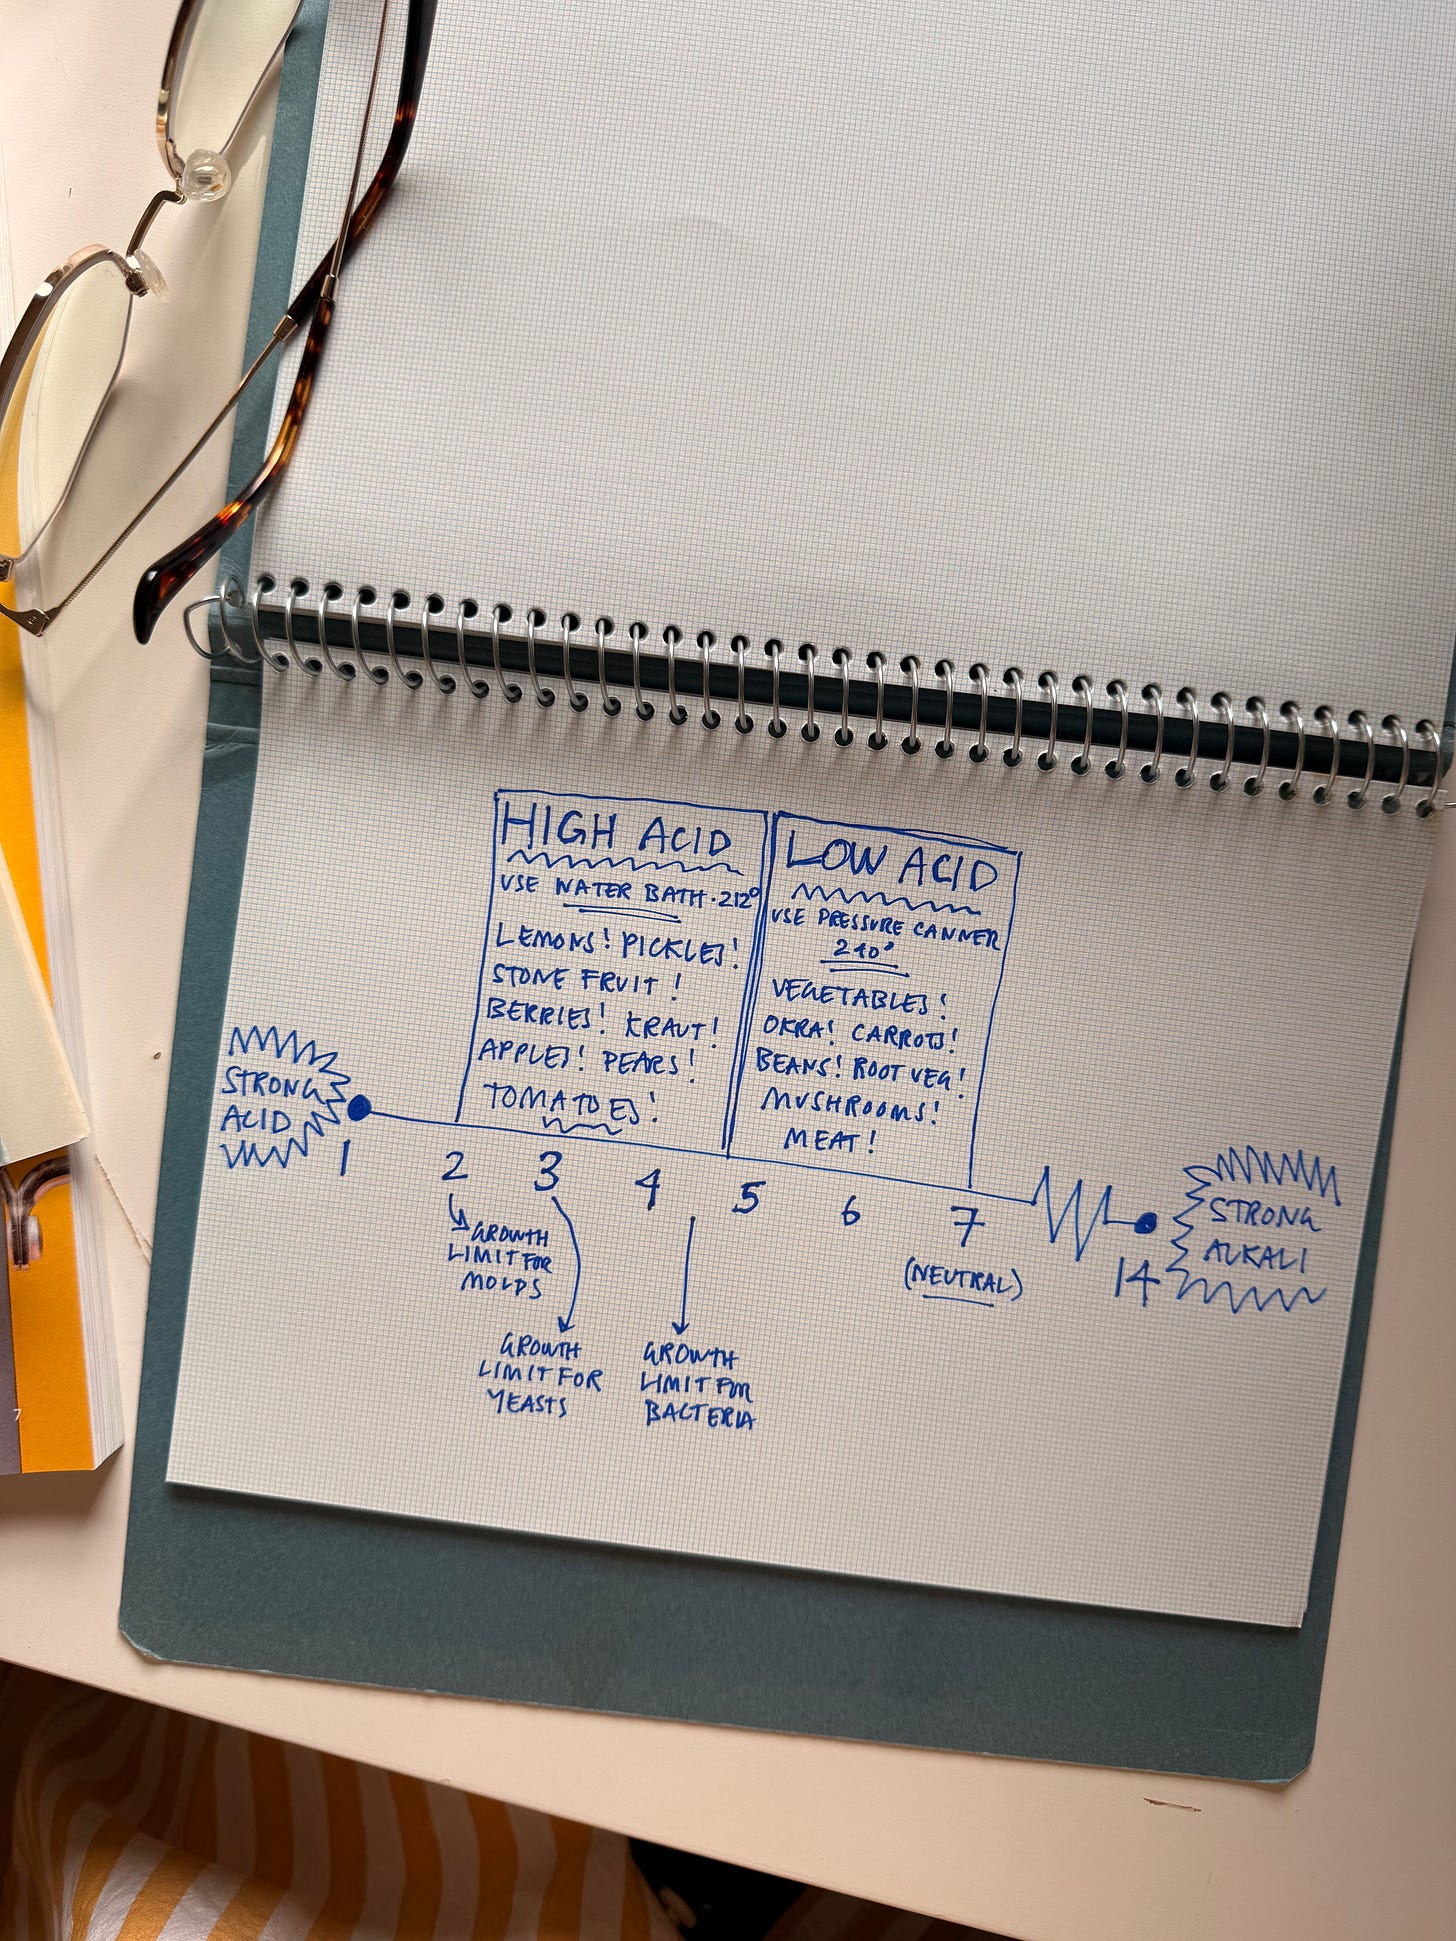 HIGH ACID
USE WATER BATH · 212°
LEMONS! PICKLES!
STONE FRUIT!
BERRIES! KRAUT!
APPLES! PEARS!
TOMATOES!
LOW ACID
USE PRESSURE CANNER
240°
VEGETABLES!
OKRA! CARROTS!
BEANS! ROOT VEG!
MUSHROOMS!
MEAT!
STRONG
ACID
1 2 3 4 5 6 7 14
(NEUTRAL)
STRONG
ALKALI
GROWTH
LIMIT FOR
MOLDS
GROWTH
LIMIT FOR
YEASTS
GROWTH
LIMIT FOR
BACTERIA